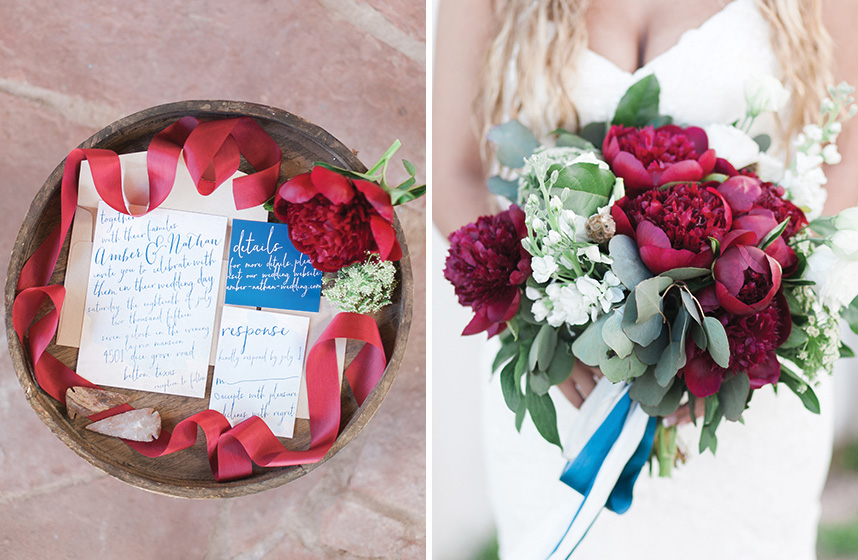 together
with their families
Amber & Nathan
invite you to celebrate with
them on their wedding day
saturday the eighteenth of july
two thousand fifteen
seven o'clock in the evening
mansion
4501 dice grove road
belton, texas
reception to follow
details
for more details
please
visit our wedding website
amber-nathan-wedding.com
response
kindly respond by july 1
m
accepts with pleasure
declines with regret